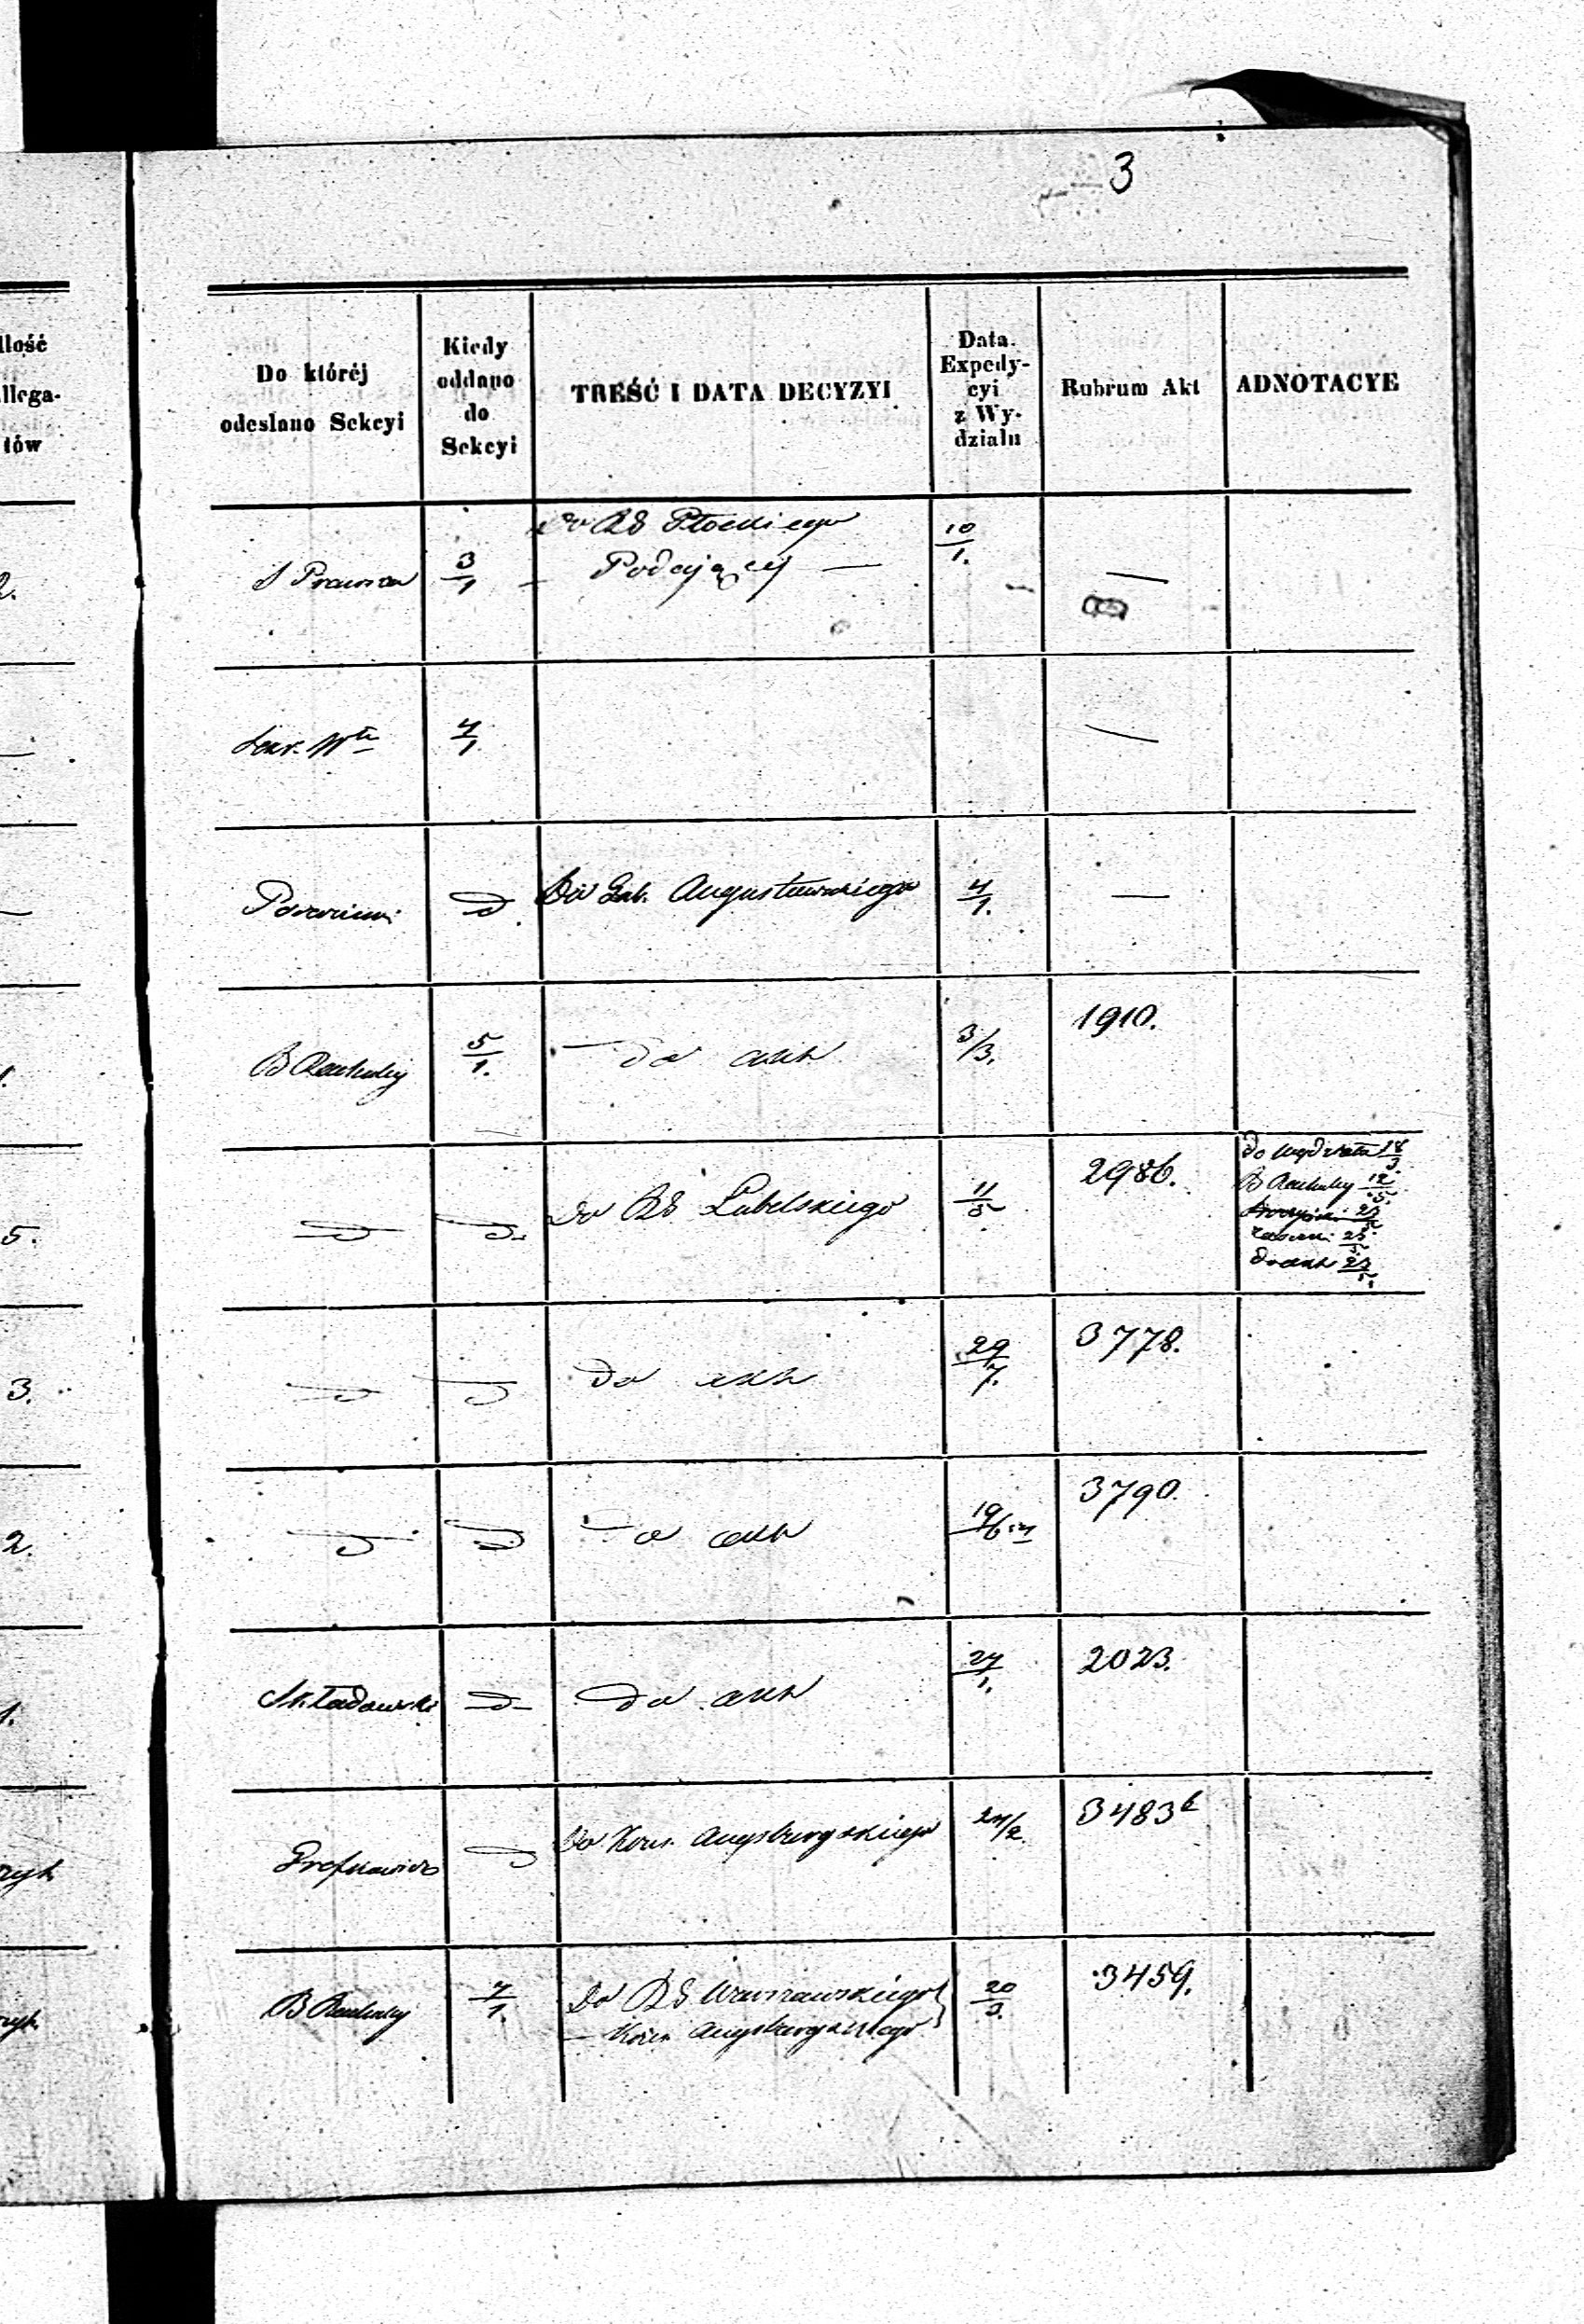 3
Ilość
allega-
tów
Do któréj
odesłano Sekcyi
Kiedy
oddano
do
Sekcyi
TREŚĆ I DATA DECYZYI
Data
Expedy-
cyi
z Wy-
działu
Rubrum Akt
ADNOTACYE
2.
S Prawna
3/1
Do RG Płockiego
Podający —
10/1.
—
Sekr. Włu
4/1.
—
d
Do Gub. Augustowskiego
4/1.
—
B Rachuby
5/1.
do akt
3/3.
1910.
5.
d
d
Do RG Lubelskiego
11/5
2986.
do wydziału 18/3.
B Rachuby 12/5.
do akt 23/5.
3.
d
d
do akt
29/7.
3778.
2.
d
d
do akt
19/6
3790.
1.
Składowski
d
do akt
27/1.
2023.
d
Do Kons. Augsburgskiego
24/2.
3483 b
B Rachuby
7/1.
Do RG Warszawskiego
— Kons Augsburgskiego
20/3.
3459.